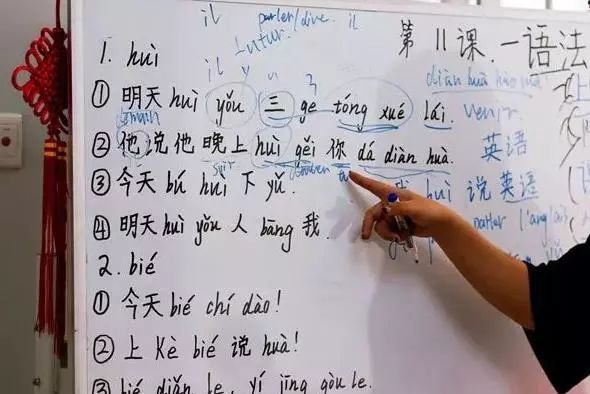 il parler/dire. il
futur.
第11课.一语法
1. huì
il y
diàn huà hào mǎ
① 明天huì yǒu 三 ge tóng xué lái. venir
② 他说他晚上 huì gěi 你 dá diàn huà. 英语
③ 今天 bú huì 下 yǔ.
huì 说 英语
parler l'anglais
④ 明天huì yǒu 人 bāng 我.
2. bié
① 今天 bié chí dào!
② 上 Kè bié 说 huà!
③ bié diǎn le, yí jīng gòu le.